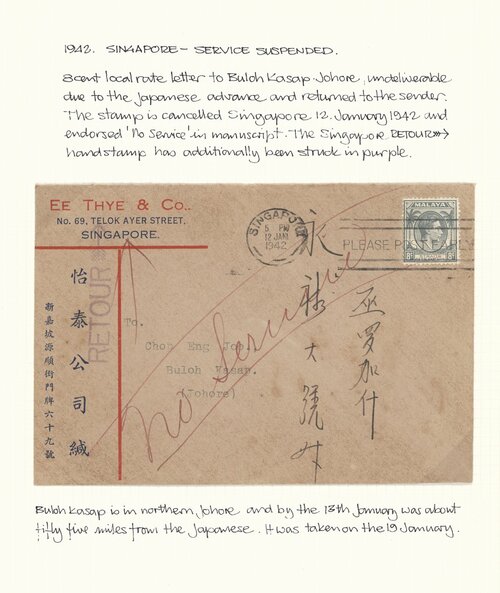 1942. SINGAPORE – SERVICE SUSPENDED.
8 cent local rate letter to Buloh Kasap Johore, undeliverable
due to the Japanese advance and returned to the sender.
The stamp is cancelled Singapore 12. January 1942 and
endorsed 'No Service' in manuscript. The Singapore RETOUR
handstamp has additionally been struck in purple.
EE THYE & CO.,
No. 69, TELOK AYER STREET,
SINGAPORE.
SINGAPORE
5 PM
12 JAN
1942
PLEASE POST EARLY
MALAYA
8c 8c
RETOUR
怡泰公司緘
新嘉坡源順街門牌六十九號
To.
Chop Eng
Buloh Kasap.
(Johore)
No Service
巫羅加什
永
大號
Buloh Kasap is in northern Johore and by the 13th January was about
fifty five miles from the Japanese. It was taken on the 19 January.